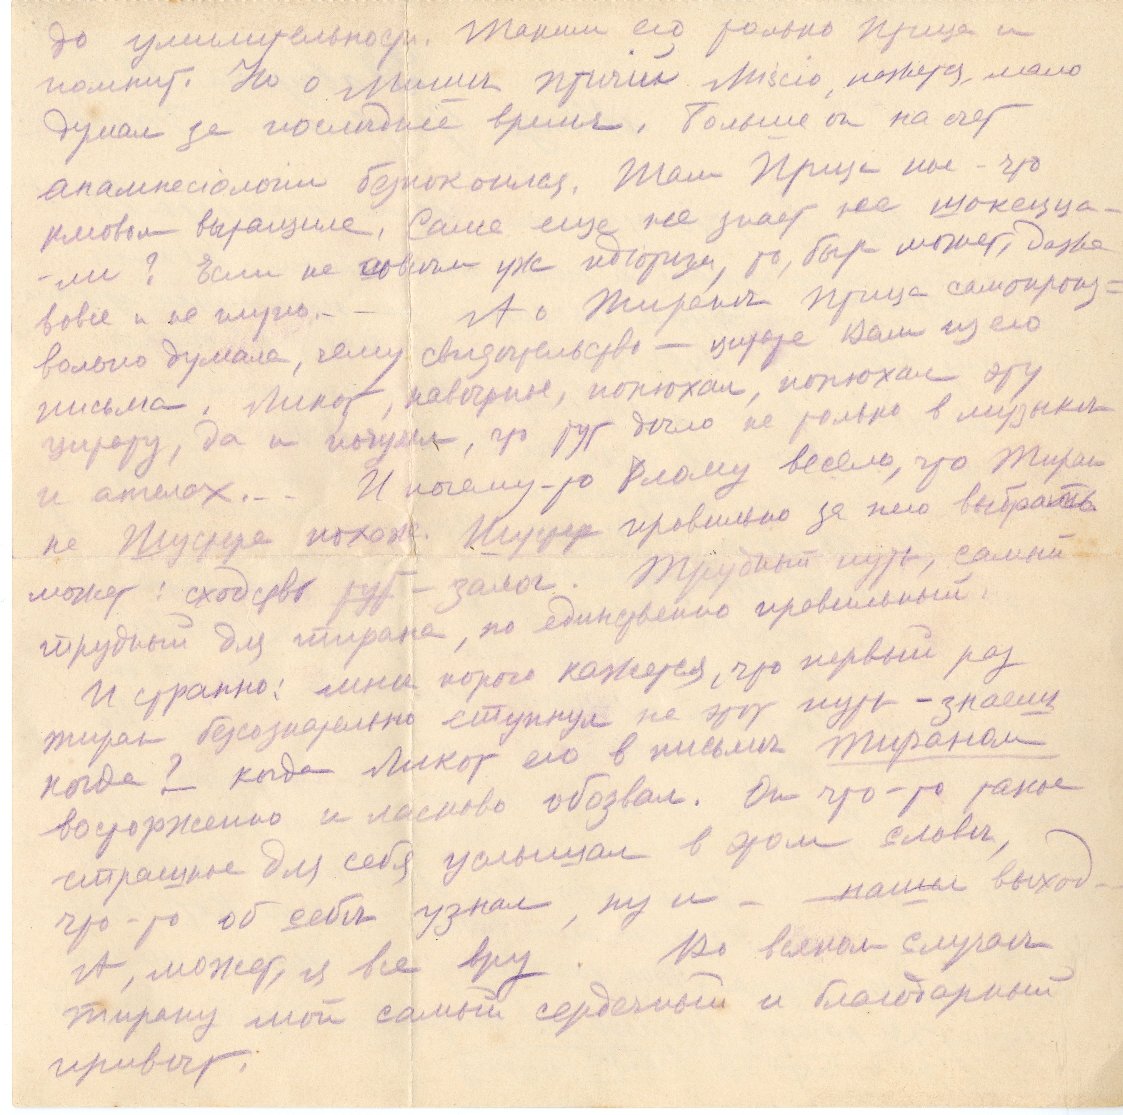 до умилительности. Таким его только Птица и
помнит. Но о Птичий Miscio, кажется, мало
думал за последнее время. Больше он насчет
беспокоился. Там Птица кое-что
вырастила. Сама еще не знает
-ли? Если не совсѣм уж то, быть может, даже
вовсе и не глупо.– А о Тиранѣ Птица самопроиз=
вольно думала, чему свидѣтельство – цитата Вам из его
письма. Ликот, навѣрное, понюхал, понюхал эту
цитату, да и подумал, что тут дѣло не только в музыкѣ
и ателах.– И почему-то весело, что Тиран
на похож. правильно за него выбрать
может: сходство тут – залог. Трудный путь, самый
трудный для тирана, но единственно правильный.
И странно: мнѣ порою кажется, что первый раз
тиран безсознательно ступнул на этот путь – знаешь
когда? – когда Ликот его в письмѣ Тираном
восторженно и ласково обозвал. Он что-то такое
страшное для себя услышал в этом словѣ,
что-то об себѣ узнал, ну и – нашел выход–
А, может, я все вру. Во всяком случаѣ
тирану мой самый сердечный и благодарный
привѣт.